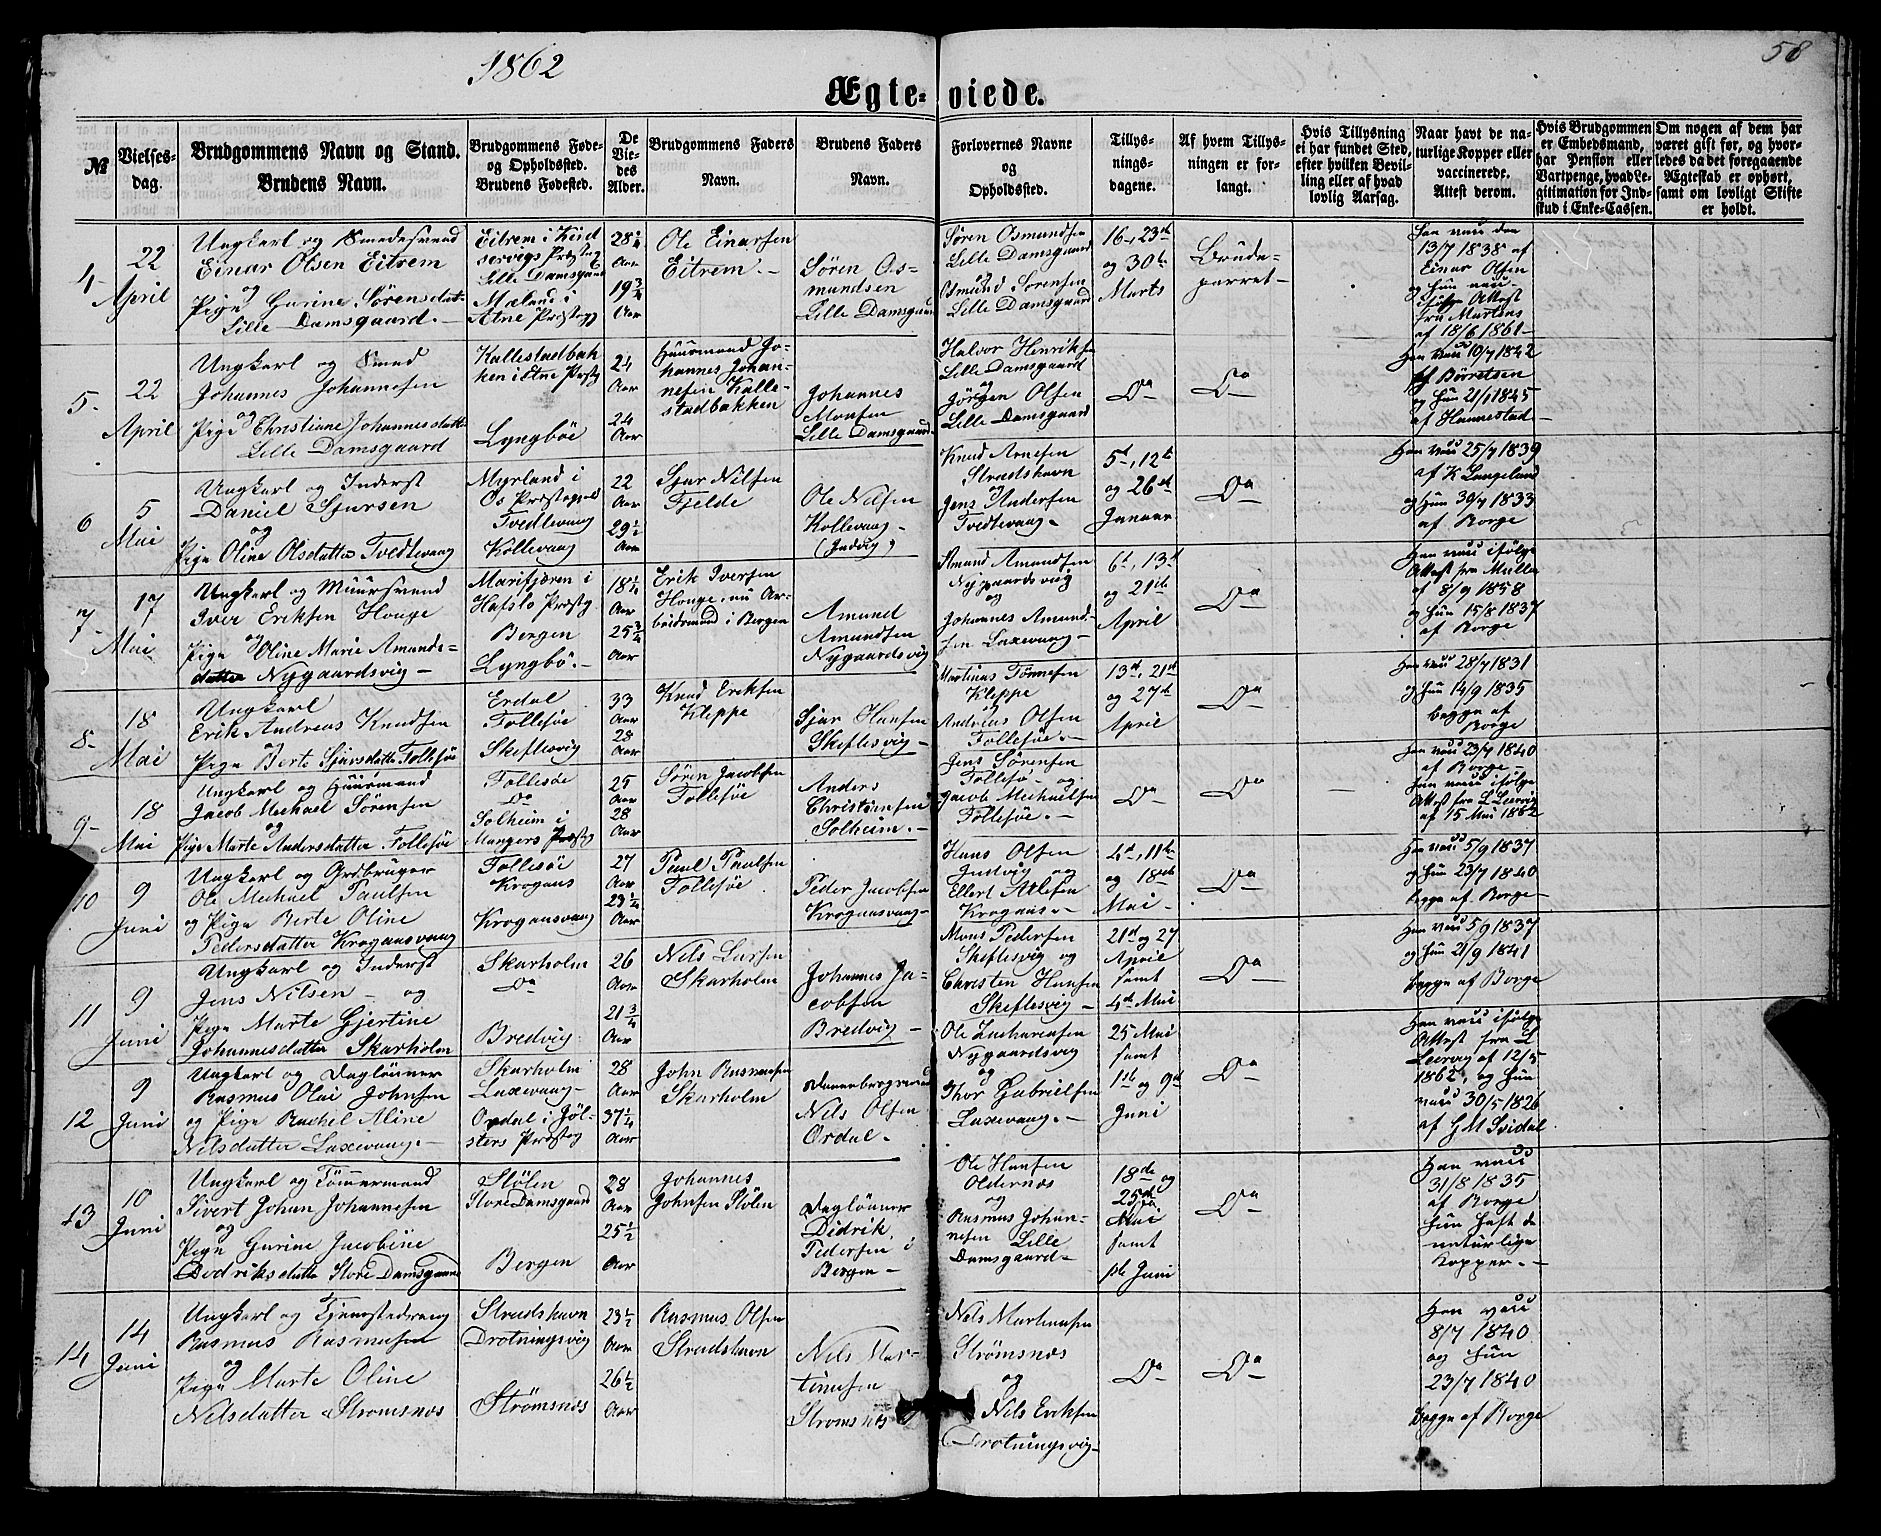 1862
58
Ægteviede.
№
Vielsesdag.
Brudgommens Navn og Stand.
Brudens Navn.
Brudgommens Føde-
og Opholdssted.
Brudens Fødested.
De
Vie-
des
Alder.
Brudgommens Faders
Navn.
Brudens Faders
Navn.
Forlovernes Navne
og
Opholdssted.
Tillys-
nings-
dagene.
Af hvem Tillys-
ningen er for-
langt.
Hvis Tillysning
ei har fundet Sted,
efter hvilken Bevil-
ling eller af hvad
lovlig Aarsag.
Naar havt de na-
turlige Kopper eller
vaccinerede.
Attest derom.
Hvis Brudgommen
er Embedsmand,
har Pension eller
Vartpenge, hvad Le-
gitimation for Ind-
skud i Enke-Cassen.
Om nogen af dem har
været gift før, og hvor-
ledes da det foregaaende
Ægteskab er ophørt,
samt om lovligt Skifte
er holdt.
4
22
April
Ungkarl og Smedesvend
Einar Olsen Eitrem
og
Pige Gurine Sørensdat-
Lille Damsgaard.
Eitrem i Kind
servigs Præsteg
Lille Damsgaard
Mæland i
Etne Præstegj
28 1/4
Aar
19 3/4
Aar
Ole Einarsen
Eitrem.
Søren Os-
mundsen
Lille Damsgaard
Søren Osmundsen
Lille Damsgaard
og
Osmund Sørensen
Lille Damsgaard
16-, 23de
og 30te
Marts
Brude-
parret
Han vacc den
13/7 1838 af
Einar Olsen
og hun vacc.
ifølge Attest
fra Martens
af 18/6 1861
5
22
April
Ungkarl og Smed
Johannes Johannesen
og
Pige Christiane Johannesdatt
Lille Damsgaard
Kallestadbak
ken i Etne Præstg
Lyngbøe
24
Aar
24
Aar
Huusmand Jo-
hannes Johan-
nesen Kalle-
stadbakken
Johannes
Monsen
Lille Damsgaard
Halvor Henriksen
Lille Damsgaard
og
Jørgen Olsen
Lille Damsgaard
Do
Do
Han vacc 10/7 1842
af Børretsen
og hun 21/1 1845
af Hannestad
6
5
Mai
Ungkarl og Inderst
Daniel Sjursen
og
Pige Oline Olsdatter Tvedtevaag
Myrland i
Os Præstegjeld
Tvedtevaag
Kollevaag
22
Aar
29 1/2
Aar
Sjur Nilsen
Fjelde
Ole Nilsen
Kollevaag
(Indvig)
Knud Arnesen
Strudshavn
og
Jens Andersen
Tvedtevaag
5te, 12te
og 26de
Januar
Do
Han vacc 25/7 1839
af K Langeland
og hun 30/7 1833
af Borge
7
17
Mai
Ungkarl og Muursvend
Iver Eriksen Houge
og
Pige Oline Marie Amunds-
datter Nygaardsvig
Marifjæren i
Hafslo Præstg
Bergen
Lyngbø.
18 1/4
Aar
25 3/4
Aar
Erik Iversen
Houge, nu Ar-
beidsmand i Bergen
Amund
Amundsen
Nygaardsvig
Amund Amundsen
Nygaardsvig
og
Johannes Amund-
sen Laxevaag
6te, 13de
og 21de
April
Do
Han vacc ifølge
Attest fra Müller
af 8/9 1858
og hun 15/8 1837
af Borge
8
18
Mai
Ungkarl
Erik Andreas Knudsen
Pige Berte Sjursdatter Follesøe
Erdal
Follesøe
Skeflesvig
33
Aar
28
Aar
Knud Eriksen
Kleppe
Sjur Hansen
Skeflesvig
Martinus Tønnesen
Kleppe
og
Andreas Olsen
Follesøe.
13de, 21de
og 27de
April
Do
Han vacc 28/7 1831
og hun 14/9 1835
begge af
Borge
9
18
Mai
Ungkarl og Huusmand
Jacob Michael Sørensen
og
Pige Marte Andersdatter Follesøe
Follesøe
Do
Solheim i
Mangers Præstg
25
Aar
28
Aar
Søren Jacobsen
Follesøe
Anders
Christensen
Solheim.
Jens Sørensen
Follesø og
Jacob Michaelsen
Follesøe.
Do
Do
Han vacc 23/7 1840
af Borge
Hun vacc ifølge
Attest fra L Leervig
af 15 Mai 1862
10
9
Juni
Ungkarl og Grdbruger
Ole Michael Paulsen
og Pige Berte Oline
Pedersdatter Krogaasvaag
Follesøe
Krogaas
Krogaasvaag
27
Aar
23 1/4
Aar
Paul Paulsen
Follesøe
Peder Jacobsen
Krogaasvaag
Hans Olsen
Indvig og
Ellert Atlesen
Krogaas
4de, 11te
og 18de
Mai
Do
Han vacc 5/9 1837
og hun 23/7 1840
begge af Borge
11
9
Juni
Ungkarl og Inderst
Jens Nilsen og
Pige Marte Gjertine
Johannesdatter Skarholm
Skarholm
Do
Bredvig
26
Aar
21 3/4
Aar
Nils Larsen
Skarholm
Johannes Ja-
cobsen
Bredvig
Mons Pedersen
Skeflesvig og
Christen Hansen
Skeflesvig
21de og 27
April
samt
4de Mai
Do
Han vacc 5/9 1837
og hun 21/9 1841
begge af Borge
12
9
Juni
Ungkarl og Daglønner
Rasmus Olai Johnsen
og Pige Rachel Aline
Nilsdatter Laxevaag.
Skarholm
Laxevaag
Ordal i Jøl-
sters Præstg
28
Aar
37 1/4
Aar
John Rasmussen
Skarholm
Dannebrogsmand
Nils Olsen
Ordal.
Ole Zachariasen
Nygaardsvig
og
Thor Gabrielsen
Laxevaag.
25 Mai
samt
1ste og 9de
Juni
Do
Han vacc ifølge
Attest fra L
Leervig af 12/5
1862, og hun
vacc 30/5 1826
af H M Svidal
13
10
Juni
Ungkarl og Tømmermand
Sivert Johan Johannesen
og
Pige Gurine Jacobine
Dedriksdatter Store Damsgaard
Stølen
Store Damsgaard
Bergen
28
Aar
25 1/2
Aar
Johannes
Johnsen Stølen
Daglønner
Didrik
Pedersen i
Bergen
Ole Hansen
Oldernæs
og
Rasmus Johan-
nesen Lille
Damsgaard
18de og
25de
Mai
samt
1ste Juni
Do
Han vacc
31/8 1835
af Borge
hun haft de
naturlige
Kopper.
14
14
Juni
Ungkarl og Tjenestedreng
Rasmus Rasmusen
og
Pige Marte Oline
Nilsdatter Strømsnæs
Strudshavn
Drotningsvig
Strømsnæs
23 1/2
Aar
26 1/2
Aar
Rasmus Olsen
Strudshavn
Nils Mar-
tinusen
Strømsnæs
Nils Martinusen
Strømsnæs
og
Nils Eriksen
Drotningsvig
Do
Do
Han vacc
8/7 1840
og hun
23/7 1840
begge af Borge